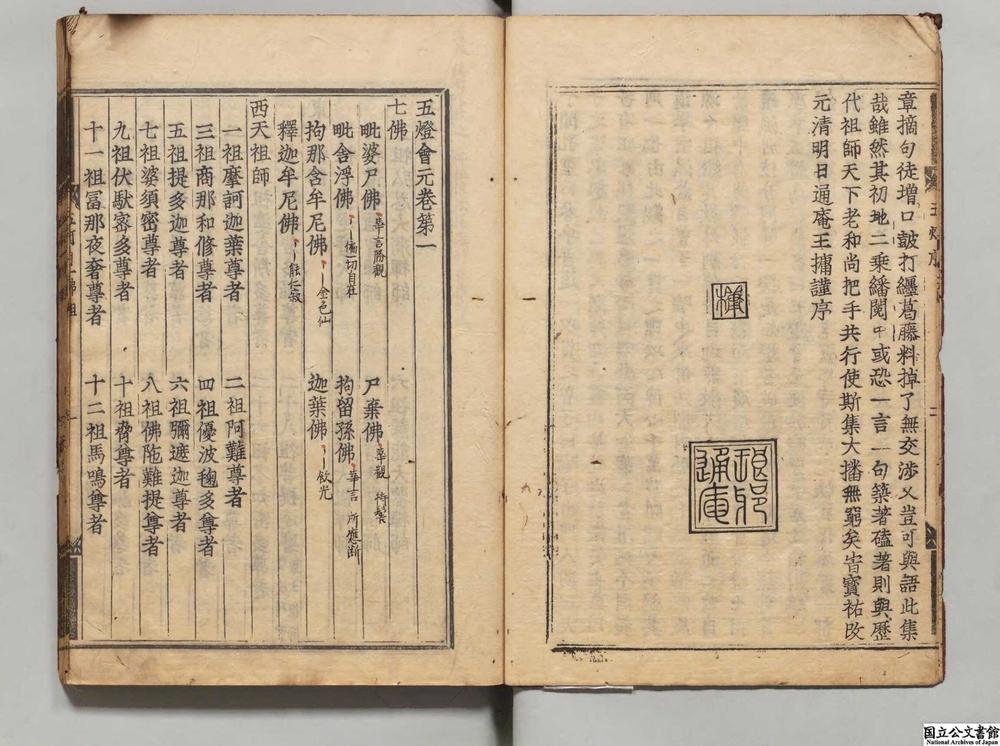 章摘句徒增口皷打纏葛藤料掉了無交渉又豈可與語此集
哉雖然其初地二乘繙閱中或恐一言一句築著磕著則與歷
代祖師天下老和尚把手共行使斯集大播無窮矣旹寶祐改
元清明日通庵王㯶謹序
琅琊通庵
五燈會元卷第一
七佛
毗婆尸佛 華言勝觀
尸棄佛
毗舍浮佛 徧一切自在
拘留孫佛 華言 所應斷
拘那含牟尼佛 金色仙
迦葉佛 飲光
釋迦牟尼佛 能仁寂
西天祖師
一祖摩訶迦葉尊者
二祖阿難尊者
三祖商那和修尊者
四祖優波毱多尊者
五祖提多迦尊者
六祖彌遮迦尊者
七祖婆須密尊者
八祖佛陁難提尊者
九祖伏馱密多尊者
十祖脅尊者
十一祖冨那夜奢尊者
十二祖馬鳴尊者
国立公文書館
National Archives of Japan